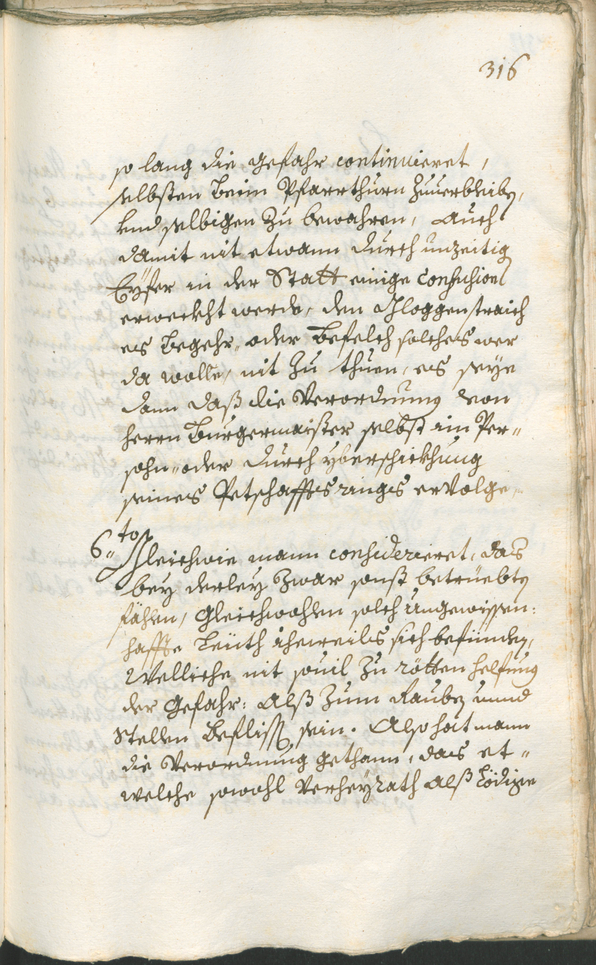 316
so lang die gefahr continuieret,
selbsten beim Pfarrthurn zuuerbleiben,
und selbigen zu bewahren, Auch
damit nit etwann durch unzeitig
Eyfer in der Statt einige Confusion
erweckht werde, den Gloggenstraich
es begehr, oder befelch solches wer
da wolle, nit zu thuen, es seye
dann daß die Verordnung von
herrn Burgermaister selbst in Per-
sohn, oder durch yberschickhung
seines Petschafftsringes ervolge.
6.to Gleichwie mann consideriret, das
bey derley zwar sonst betrüebten
fählen, Gleichwohlen solch ungewissen-
haffte Leüth iheweils sich befünden,
Welliche nit souil zu
der Gefahr: Alß zum Rauben unnd
Stellen befliss. sein. Also hat mann
die Verordnung gethann, das et-
welche sowohl Verheyrath alß Lödige